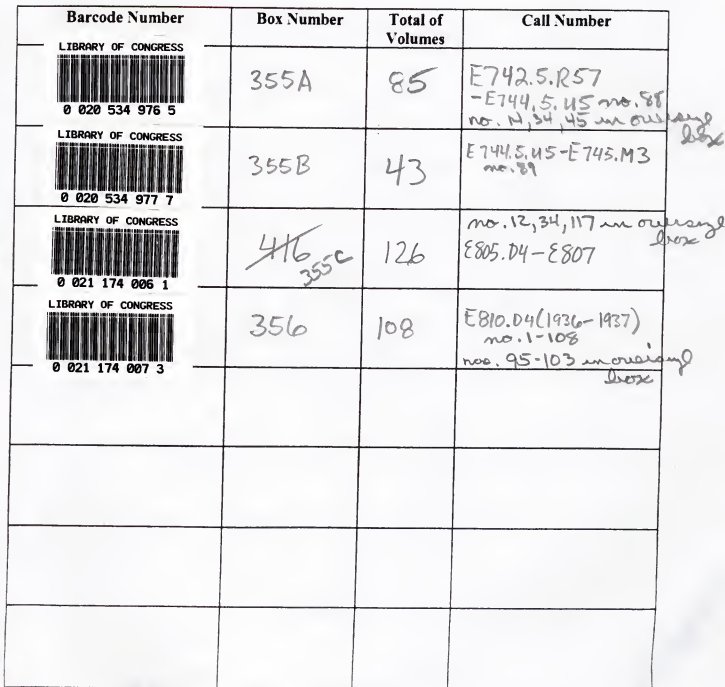 Barcode Number Box Number Total of Volumes Call Number
LIBRARY OF CONGRESS
0 020 534 976 5
355A
85
E742.5.R57
-E744.5.U5 no. 88
no. 14, 34, 45 in oversize
box
LIBRARY OF CONGRESS
0 020 534 977 7
355B
43
E744.5.U5-E745.M3
no. 89
LIBRARY OF CONGRESS
0 021 174 006 1
416
355C
126
no. 12, 34, 117 in oversize
box
E805.D4-E807
LIBRARY OF CONGRESS
0 021 174 007 3
356
108
E810.D4(1936-1937)
no. 1-108
nos. 95-103 in oversize
box